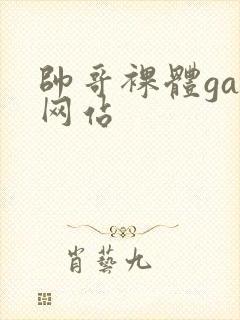 帥哥裸體ga
网佔
肖藝九